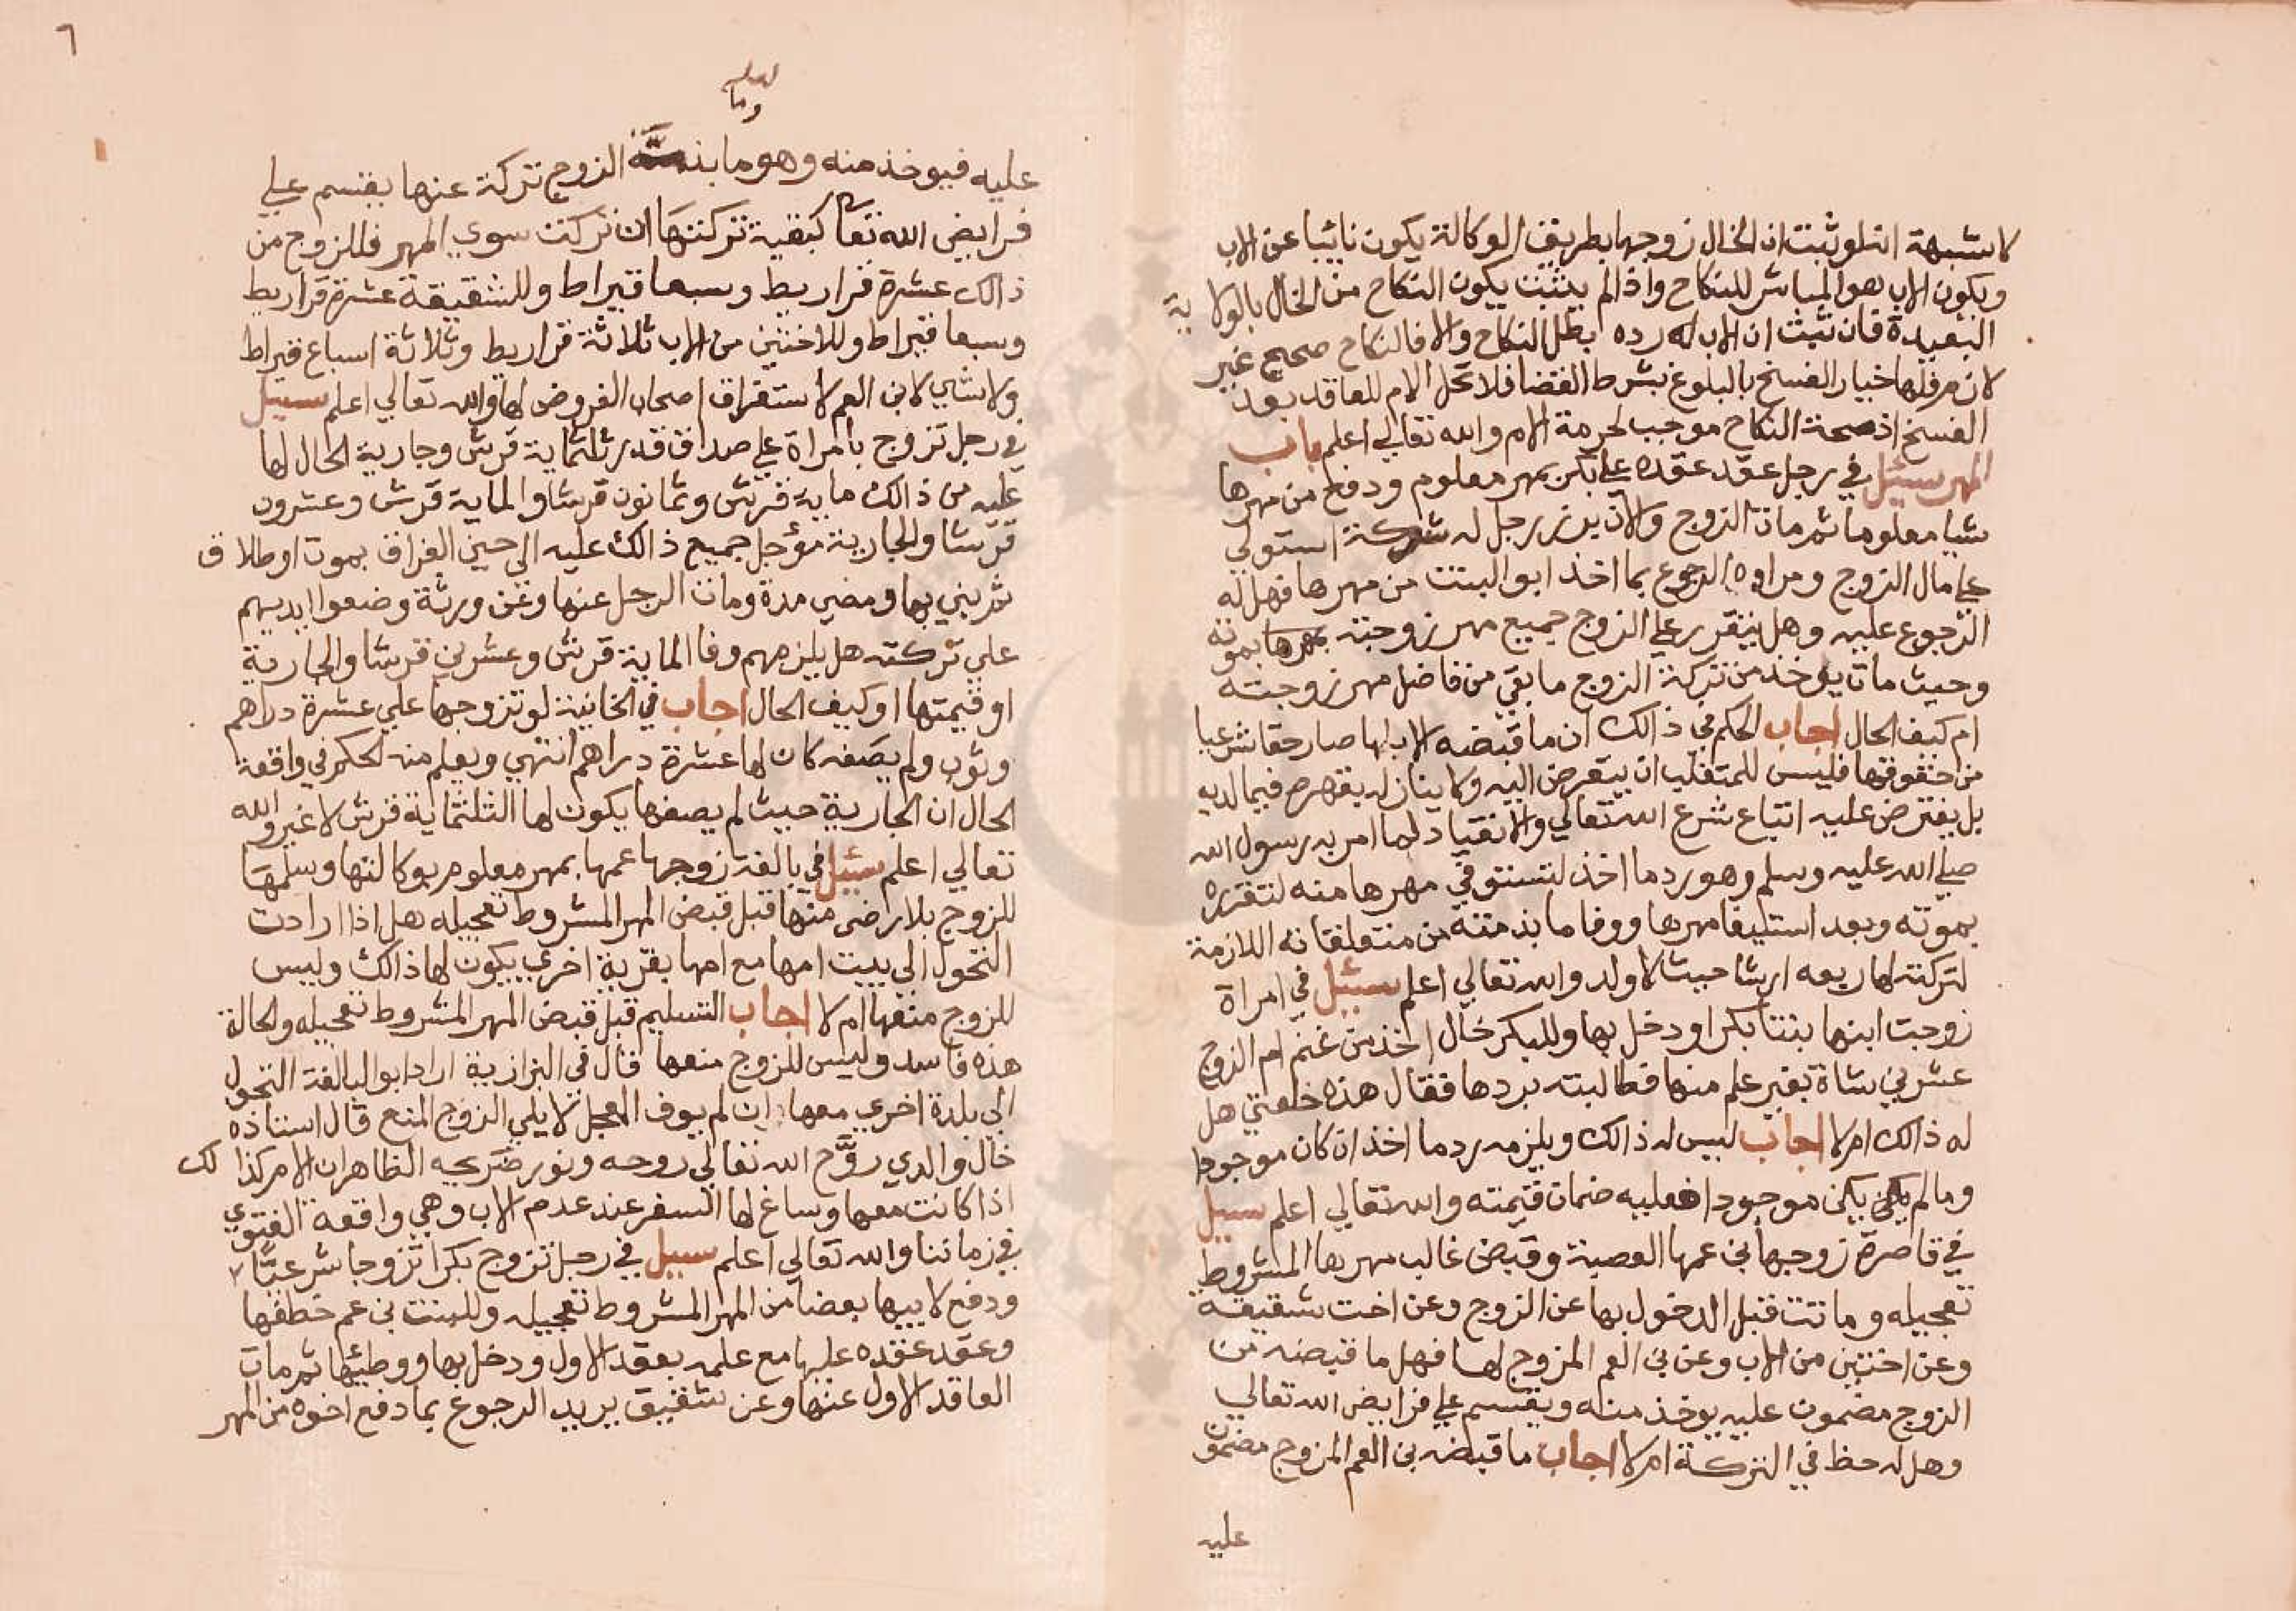 لاشبهة انه لو ثبت ان الخال زوجها بطريق الوكالة يكون نائبا عن الاب
ويكون الاب هو المباشر للنكاح واذا لم يثبت يكون النكاح من الخال بالولاية
البعيدة فان ثبت ان الاب له رده بطل النكاح والا فالنكاح صحيح غير
لازم فلها خيار الفسخ بالبلوغ بشرط القضا فلا تحل الام للعاقد بعد
الفسخ اذ صحة النكاح موجب لحرمة الام والله تعالي اعلم باب
المهر سئيل في رجل عقد عقده علي بكر بمهر معلوم ودفع من مهرها
شيا معلوما ثم مات الزوج والان برز رجل له شركة استولي
علي مال الزوج ومراده الرجوع بما اخذ ابو البنت من مهرها فهل له
الرجوع عليه وهل يتقرر علي الزوج جميع مهر زوجته بموته
وحيث مات يوخذ من تركة الزوج ما بقي من فاضل مهر زوجته
ام كيف الحال اجاب الحكم في ذالك ان ما قبضه الاب لها صار حقا شرعيا
من حقوقها فليس للمتغلب ان يتعرض اليه ولا ينازله بقهره فيما لديه
بل يفترض عليه اتباع شرع الله تعالي والانقياد لما امر به رسول الله
صلي الله عليه وسلم وهو رد ما اخذ لتستوفي مهرها منه لتقرره
بموته وبعد استيفا مهرها ووفا ما بذمته من متعلقاته اللازمة
لتركته لها ربعه ارثا حيث لا ولد والله تعالي اعلم سئيل في امراة
زوجت ابنها بنتا بكرا ودخل بها وللبكر خال اخذ من غنم ام الزوج
عشرين شاة بغير علم منها فطالبته بردها فقال هذه خلعتي هل
له ذالك ام لا اجاب ليس له ذالك ويلزمه رد ما اخذ ان كان موجودا
وما لم يكن موجودا فعليه ضمان قيمته والله تعالي اعلم سيل
في قاصرة زوجها بن عمها العصبة وقبض غالب مهرها المشروط
تعجيله وماتت قبل الدخول بها عن الزوج وعن اخت شقيقة
وعن اختين من الاب وعن بن العم المزوج لها فهل ما قبضه من
الزوج مضمون عليه يوخذ منه ويقسم علي فرايض الله تعالي
وهل له حظ في التركة ام لا اجاب ما قبضه بن العم المزوج مضمون
عليه
٦
لعله
وما
عليه فيوخذ منه وهو ما بذمة الزوج تركة عنها يقسم علي
فرايض الله تعا كبقية تركتها ان تركت سوي المهر فللزوج من
ذالك عشرة قراريط وسبعا قيراط وللشقيقة عشرة قراريط
وسبعا قيراط وللاختين من الاب ثلاثة قراريط وثلاثة اسباع قيراط
ولا شاي لابن العم لاستغراق اصحاب الفروض لها والله تعالي اعلم سئيل
في رجل تزوج بامراة علي صداق قدره ثلثماية قرش وجارية الحال لها
عليه من ذالك ماية قرش وثمانون قرشا والماية قرش وعشرون
قرشا والجارية مؤجل جميع ذالك عليه الي حين الفراق بموت او طلاق
ثم بني بها ومضي مدة ومات الرجل عنها وعن ورثة وضعوا ايديهم
علي تركته هل يلزمهم وفا الماية قرش وعشرين قرشا والجارية
او قيمتها او كيف الحال اجاب في الخانية لو تزوجها علي عشرة دراهم
وثوب ولم يصفه كان لها عشرة دراهم انتهي ويعلم منه الحكم في واقعة
الحال ان الجارية حيث لم يصفها يكون لها الثلثماية قرش لا غير والله
تعالي اعلم سئيل في بالغة زوجها عمها بمهر معلوم بوكالتها وسلمها
للزوج بلا رضي منها قبل قبض المهر المشروط تعجيله هل اذا ارادت
التحول الي بيت امها مع امها بقرية اخري يكون لها ذالك وليس
للزوج منعها ام لا اجاب التسليم قبل قبض المهر المشروط تعجيله والحالة
هذه فاسد وليس للزوج منعها قال في البزازية اراد ابو البالغة التحول
الي بلدة اخري معها ان لم يوف المعجل لا يلي الزوج المنع قال استاذه
خال والدي روَّح الله تعالي روحه ونور ضريحه الظاهر ان الامر كذالك
اذا كانت معها وساغ لها السفر عند عدم الاب وهي واقعة الفتوي
في زماننا والله تعالي اعلم سيل في رجل تزوج بكرا تزوجا شرعيًّا
ودفع لابيها بعضا من المهر المشروط تعجيله وللبنت بن عم خطفها
وعقد عقده عليها مع علمه بعقد الاول ودخل بها ووطيئها ثم مات
العاقد الاول عنها وعن شقيق يريد الرجوع بما دفع اخوه من المهر